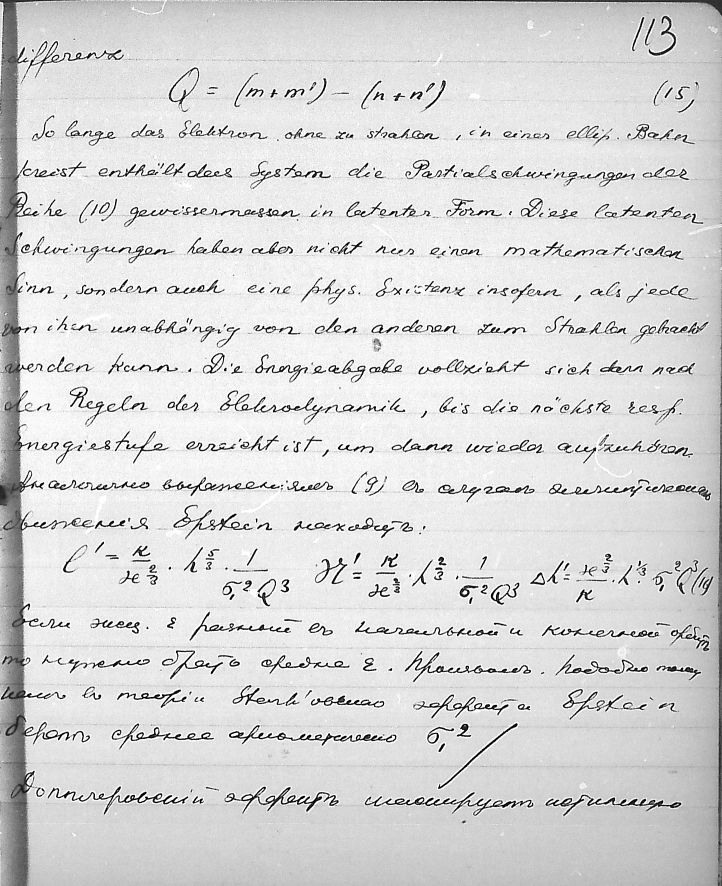 113
differenz
Q = (m+m') − (n+n') (15)
So lange das Elektron, ohne zu strahlen, in einer ellip. Bahn
kreist enthält das System die Partialschwingungen der
Reihe (10) gewissermassen in latenter Form. Diese latenten
Schwingungen haben aber nicht nur einen mathematischen
Sinn, sondern auch eine phys. Existenz insofern, als jede
von ihen unabhängig von den anderen zum Strahlen gebracht
werden kann. Die Energieabgabe vollzieht sich dann nach
den Regeln der Elektrodynamik, bis die nächste resp.
Energiestufe erreicht ist, um dann wieder aufzuhören.
Аналогично выраженіямъ (9) въ случаѣ эллиптическаго
движенія Epstein находитъ:
l' = κ/ϰ^⅔ · h^5/3 · 1/σ₁²Q³ = κ/ϰ^⅔ · h^⅔ · 1/σ₁²Q³ Δ = ϰ^⅔/κ · h^⅓ · σ₁²Q³
Если эксц. ε разный въ начальной и конечной орбитѣ
то нужно брать средне ε. Произвольн. Подобно тому
какъ въ теоріи Stark'овскаго эффекта Epstein
беретъ среднее ариѳметично σ₁²
Допплеровскій эффектъ маскируетъ истинную